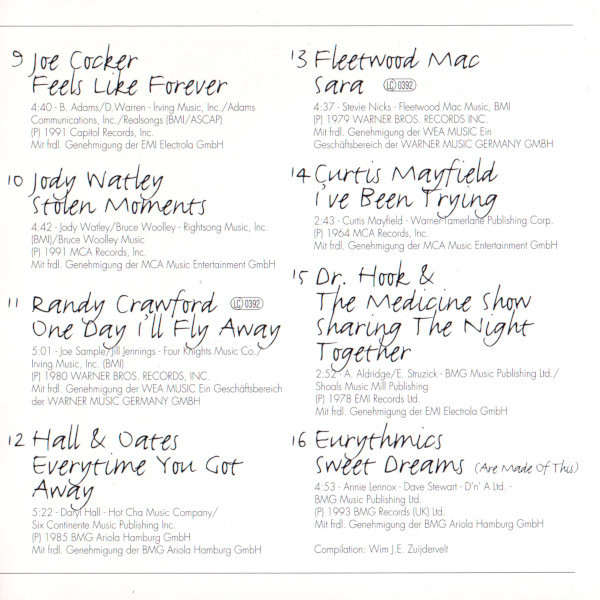 9 Joe Cocker
Feels Like Forever
4:40 - B. Adams/D.Warren - Irving Music, Inc./Adams
Communications, Inc./Realsongs (BMI/ASCAP)
(P) 1991 Capitol Records, Inc.
Mit frdl. Genehmigung der EMI Electrola GmbH
10 Jody Watley
Stolen Moments
4:42 - Jody Watley/Bruce Woolley - Rightsong Music, Inc.
(BMI)/Bruce Woolley Music
(P) 1991 MCA Records, Inc.
Mit frdl. Genehmigung der MCA Music Entertainment GmbH
11 Randy Crawford LC 0392
One Day i'll Fly Away
5:01 - Joe Sample/Jill Jennings - Four Knights Music Co./
Irving Music, Inc. (BMI)
(P) 1980 WARNER BROS. RECORDS, INC.
Mit frdl. Genehmigung der WEA MUSIC Ein Geschäftsbereich
der WARNER MUSIC GERMANY GMBH
12 Hall & Oates
Everytime You Got
Away
5:22 - Daryl Hall - Hot Cha Music Company/
Six Continente Music Publishing Inc.
(P) 1985 BMG Ariola Hamburg GmbH
Mit frdl. Genehmigung der BMG Ariola Hamburg GmbH
13 Fleetwood Mac
Sara LC 0392
4:37 - Stevie Nicks - Fleetwood Mac Music, BMI
(P) 1979 WARNER BROS. RECORDS INC.
Mit frdl. Genehmigung der WEA MUSIC Ein
Geschäftsbereich der WARNER MUSIC GERMANY GMBH
14 Curtis Mayfield
i've Been Trying
2:43 - Curtis Mayfield - Warner-Tamerlane Publishing Corp.
(P) 1964 MCA Records, Inc.
Mit frdl. Genehmigung der MCA Music Entertainment GmbH
15 Dr. Hook &
The Medicine Show
Sharing The Night
Together
2:52 - A. Aldridge/E. Struzick - BMG Music Publishing Ltd./
Shoals Music Mill Publishing
(P) 1978 EMI Records Ltd.
Mit frdl. Genehmigung der EMI Electrola GmbH
16 Eurythmics
Sweet Dreams (Are Made Of This)
4:53 - Annie Lennox - Dave Stewart - D'n' A Ltd. -
BMG Music Publishing Ltd.
(P) 1993 BMG Records (UK) Ltd.
Mit frdl. Genehmigung der BMG Ariola Hamburg GmbH
Compilation: Wim J.E. Zuijdervelt